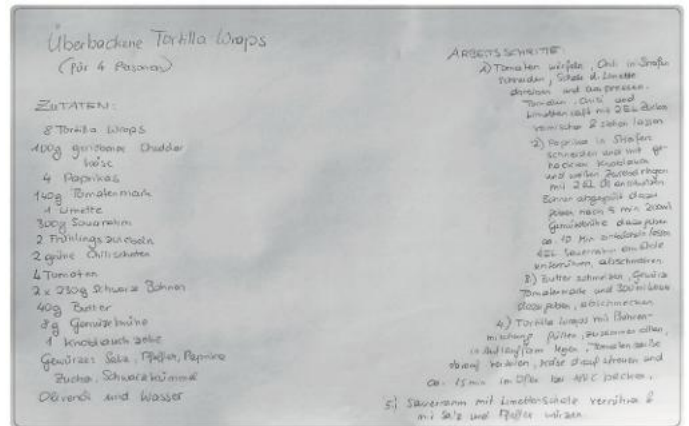 Überbackene Tortilla Wraps
(für 4 Personen)
ZUTATEN:
8 Tortilla Wraps
100g geriebener Cheddar
käse
4 Paprikas
140g Tomatenmark
1 Limette
300g Sauerrahm
2 Frühlingszwiebeln
2 grüne Chilischoten
4 Tomaten
2 x 250g Schwarze Bohnen
40g Butter
8g Gemüsebrühe
1 Knoblauchzehe
Gewürze: Salz, Pfeffer, Paprika
Zucker, Schwarzkümmel
Olivenöl und Wasser
ARBEITSSCHRITTE:
1) Tomaten würfeln, Chili in Streifen
schneiden, Schale d. Limette
abreiben und auspressen.
Tomaten, Chili und
Limettensaft mit 2EL Zucker
vermischen & ziehen lassen
2) Paprika in Streifen
schneiden und mit ge-
hackten Knoblauch
und weißen Zwiebelringen
mit 2 EL Öl anschwitzen
Bohnen abgespült dazu
geben nach 5 min 200ml
Gemüsebrühe dazugeben
ca. 10 Min einköcheln lassen
4EL Sauerrahm am Ende
unterrühren, abschmecken
3) Butter schmelzen, Gewürze
Tomatenmark und 300ml
dazugeben, abschmecken
4.) Tortilla Wraps mit Bohnen-
mischung füllen, zusammenrollen,
in Auflaufform legen, Tomatensoße
darauf verteilen, Käse drauf streuen und
ca. 15min im Ofen bei backen.
5.) Sauerrahm mit Limettenschale verrühren &
mit Salz und Pfeffer würzen